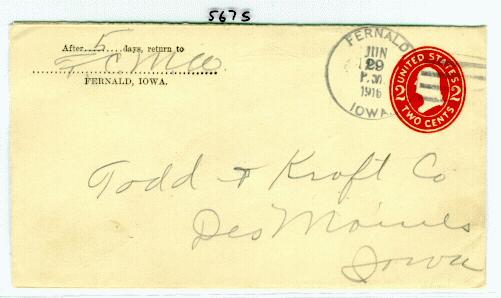 5675
After 5 days, return to
FERNALD, IOWA.
FERNALD
JUN
29
P.M.
1916
IOWA.
UNITED STATES
2 2
TWO CENTS
Todd & Kraft Co
Des Moines
Iowa